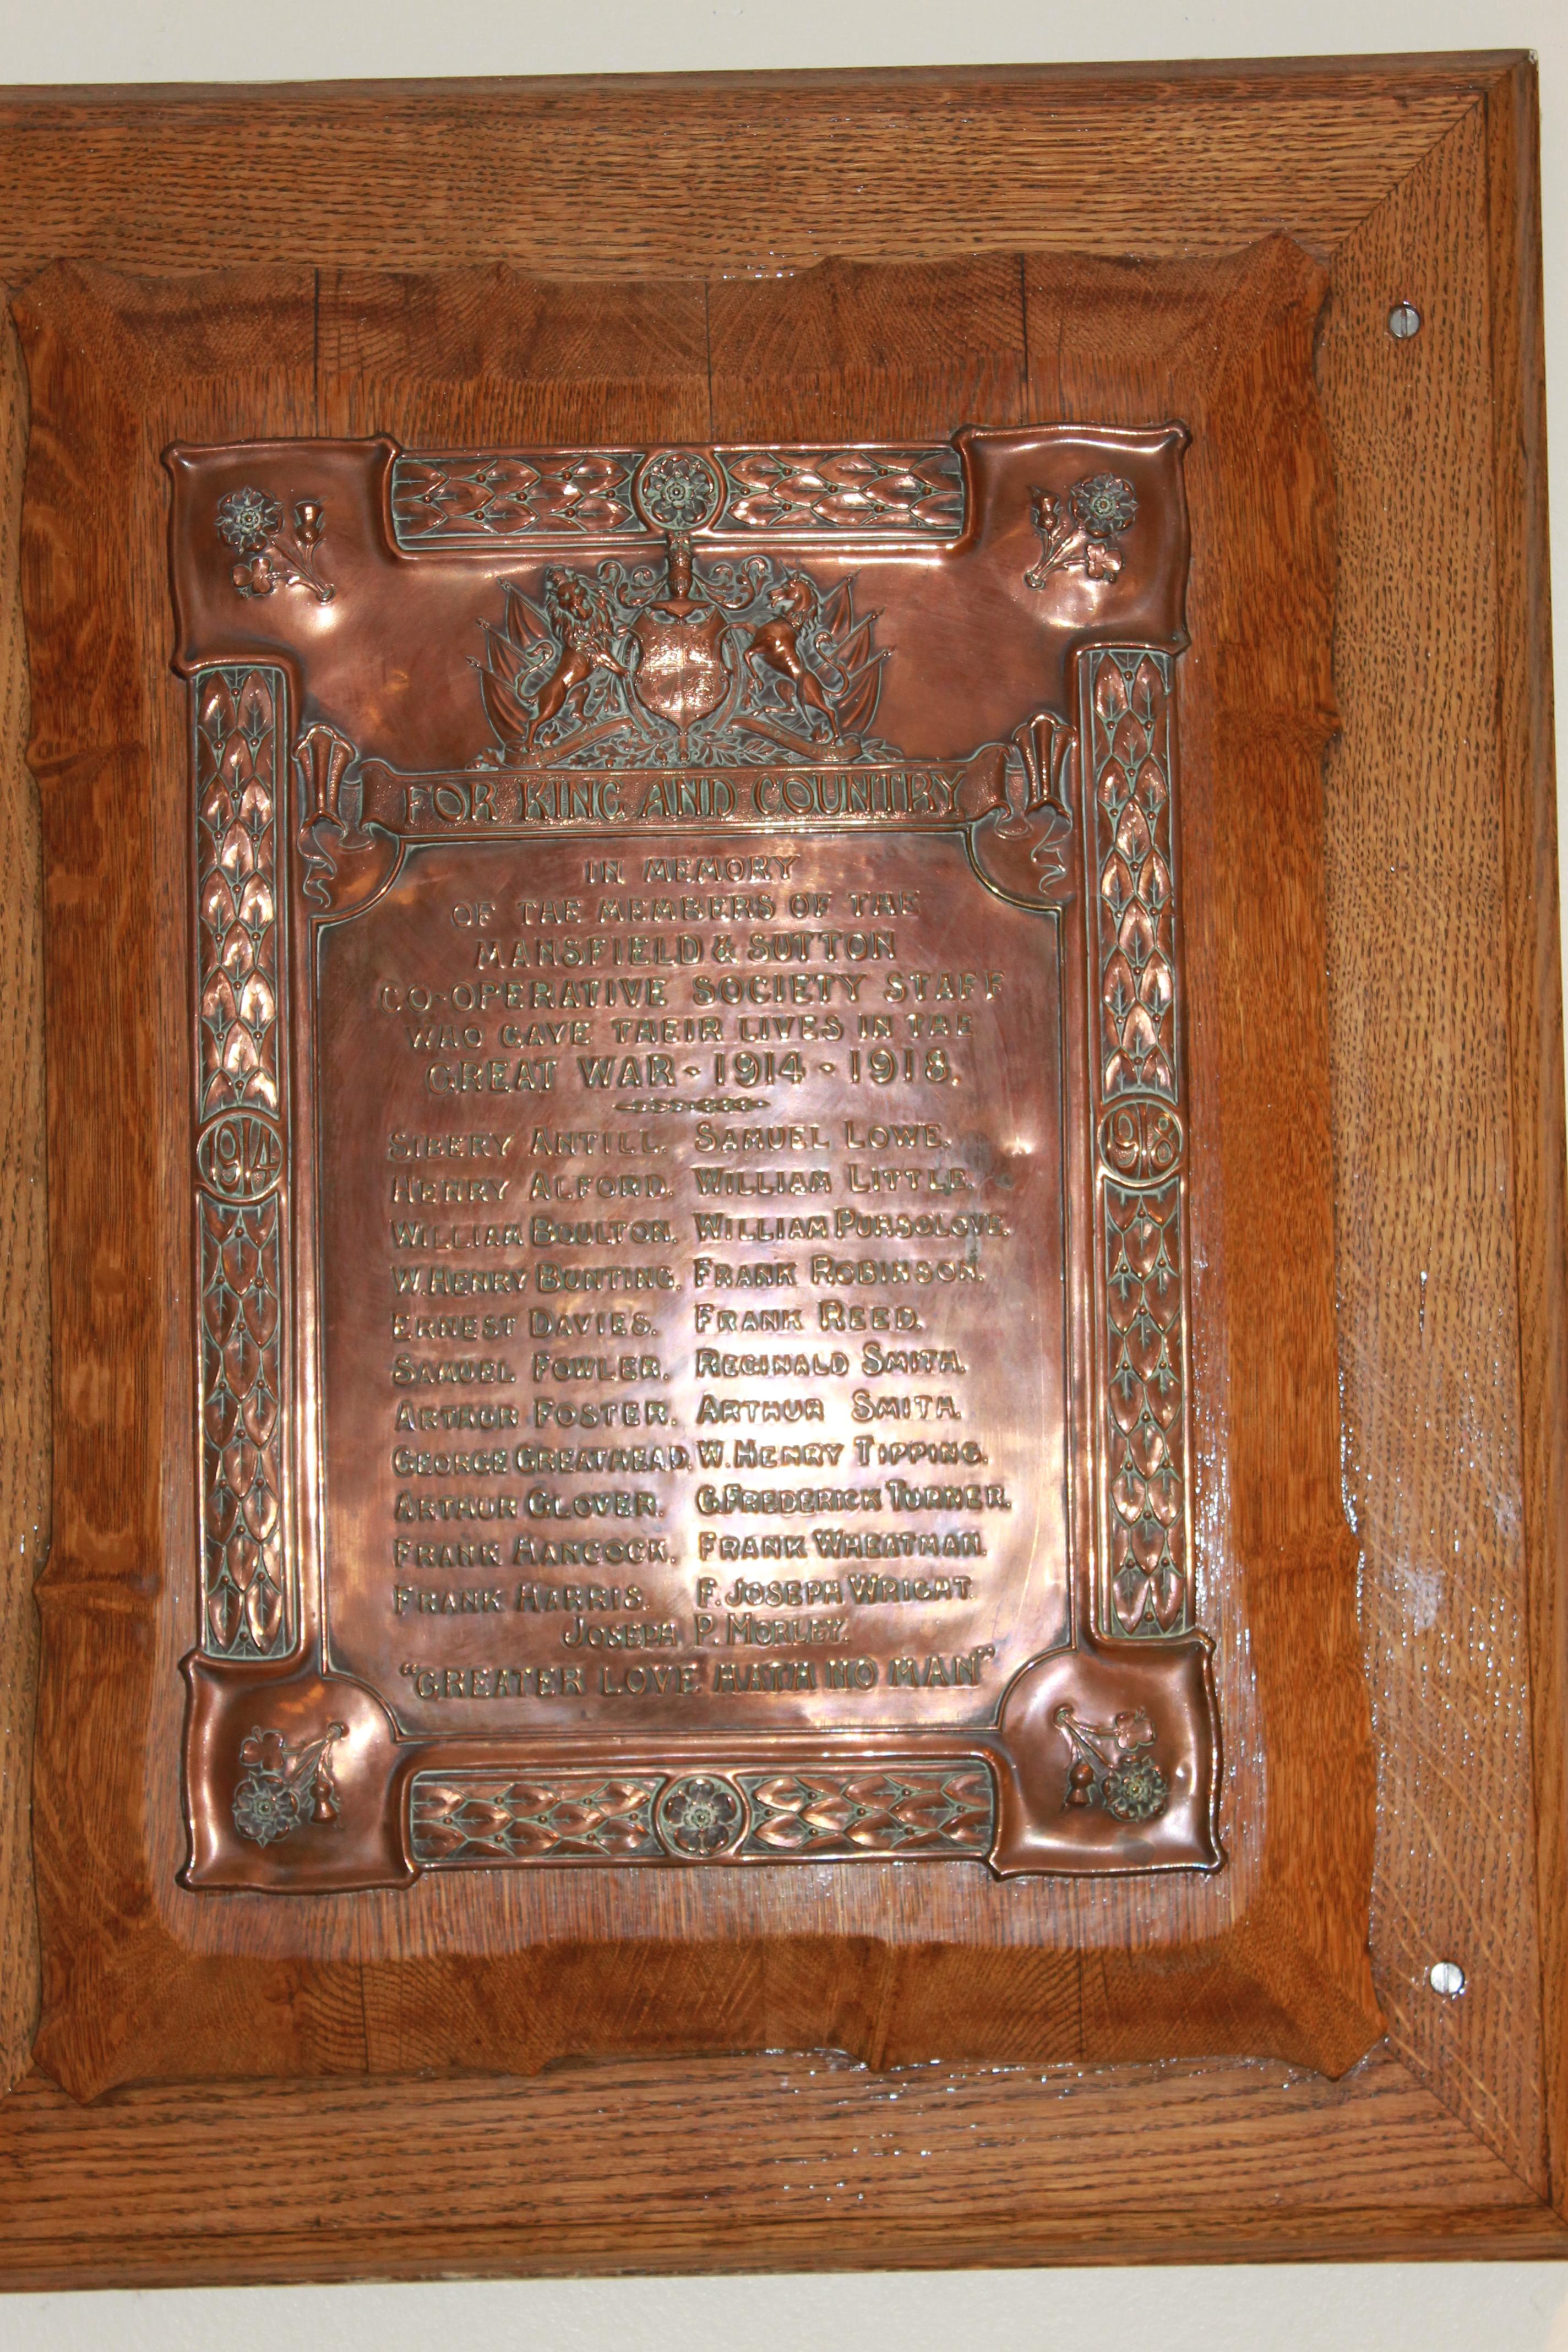 FOR KING AND COUNTRY
IN MEMORY
OF THE MEMBERS OF THE
MANSFIELD & SUTTON
CO-OPERATIVE SOCIETY STAFF
WHO GAVE THEIR LIVES IN THE
GREAT WAR - 1914 - 1918.
1914
1918
SIBERY ANTILL. SAMUEL LOWE.
HENRY ALFORD. WILLIAM LITTLE.
WILLIAM BOULTON. WILLIAM PURSGLOVE.
W. HENRY BUNTING. FRANK ROBINSON.
ERNEST DAVIES. FRANK REED.
SAMUEL FOWLER. REGINALD SMITH.
ARTHUR FOSTER. ARTHUR SMITH.
GEORGE GREATHEAD. W. HENRY TIPPING.
ARTHUR GLOVER. G. FREDERICK TURNER.
FRANK HANCOCK. FRANK WHEATMAN.
FRANK HARRIS. F. JOSEPH WRIGHT.
JOSEPH P. MORLEY.
"GREATER LOVE HATH NO MAN"